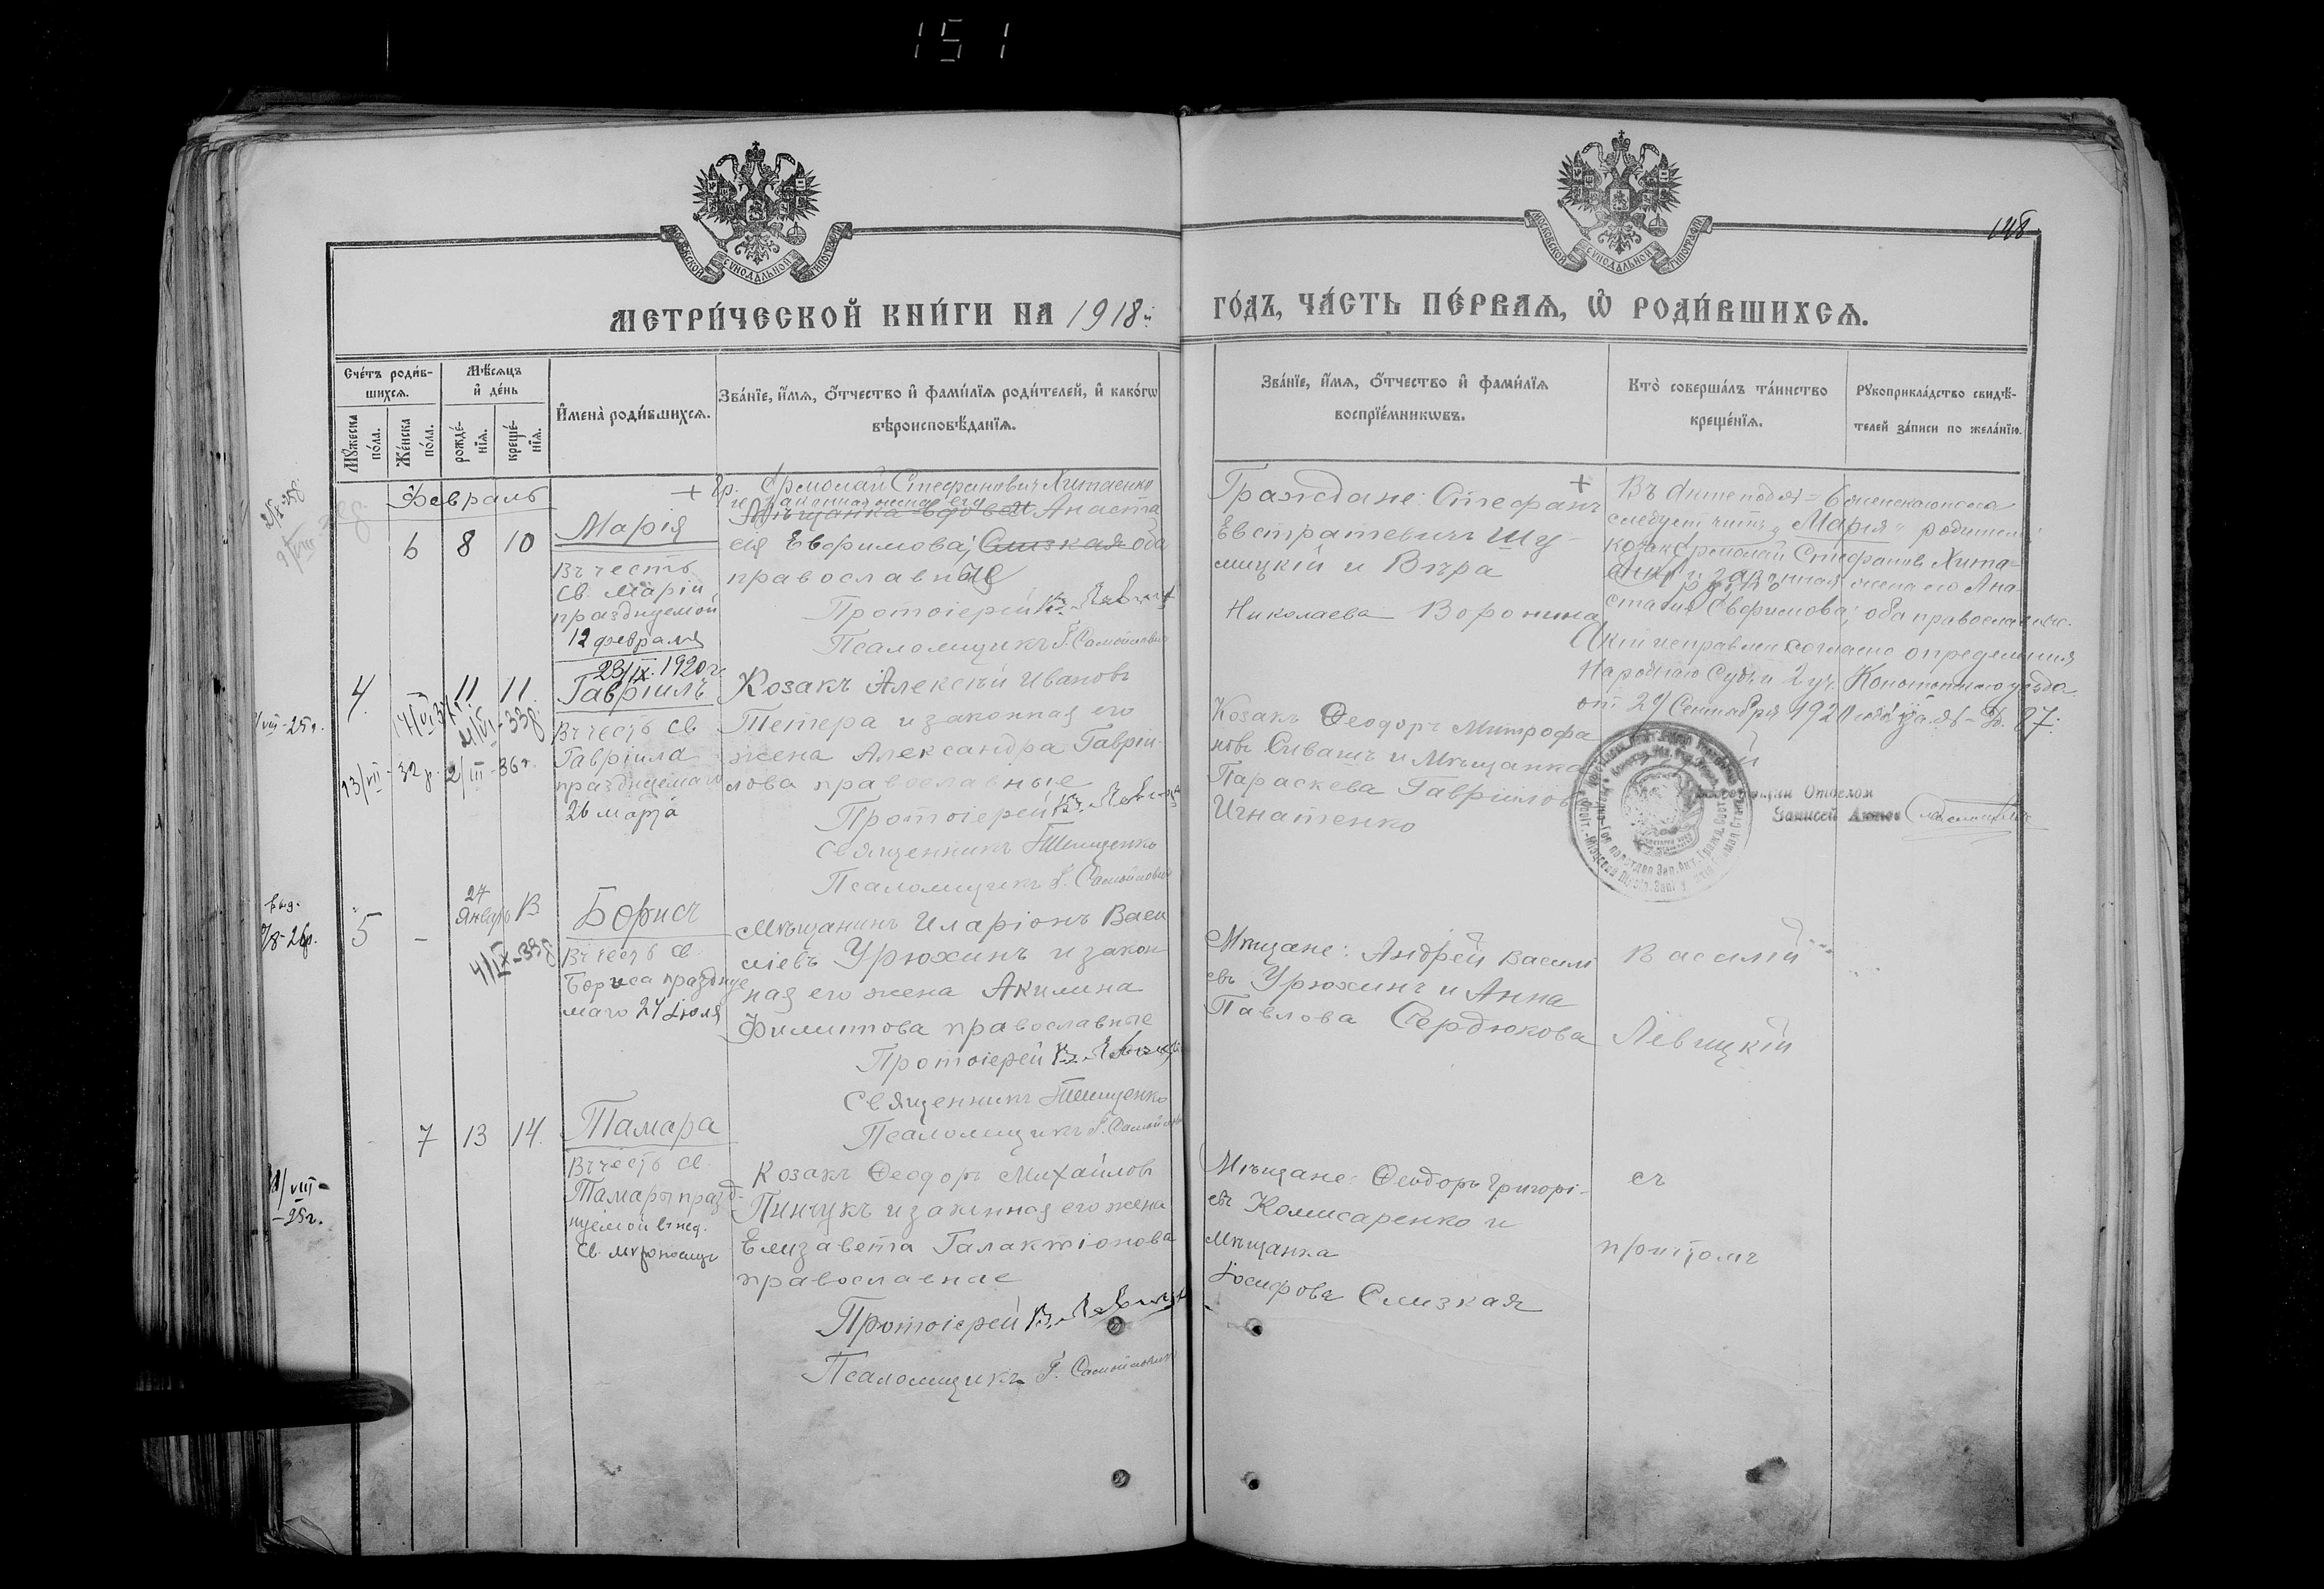 151
148
МОСКОВСКОЙ СѴНОДАЛЬНОЙ ТИПОГРАФІИ
МОСКОВСКОЙ СѴНОДАЛЬНОЙ ТИПОГРАФІИ
МЕТРИ́ЧЕСКОЙ КНИ́ГИ НА 1918й
ГО́ДЪ, ЧА́СТЬ ПЕ́РВАѦ, Ѡ҆ РОДИ́ВШИХСѦ.
Сче́тъ роди́в-
шихся.
Мѣ́сяцъ
и҆ де́нь
Мꙋ́жеска
по́ла.
Же́нска
по́ла.
рожде́-
нїѧ.
креще́-
нїѧ.
И҆мена̀ роди́вшихсѧ.
Зва́нїе, и҆́мѧ, ѻ҆́тчество и҆ фами́лїѧ роди́телей, и҆ како́гѡ
вѣроисповѣ́данїѧ.
Зва́нїе, и҆́мѧ, ѻ҆́тчество и҆ фами́лїѧ
воспрїе́мникѡвъ.
Кто̀ соверша́лъ та́инство
креще́нїѧ.
Рꙋкоприкла́дство свидѣ́-
телей за́писи по жела́нїю.
Февраль
6 8 10
Марія
Въ честь
св. Маріи
празднуемой
12 февраля
23/IX. 1920 г.
+ Гр. Ермолай Стефановичъ Хитаенко
и законная жена его
Мѣщанка вдова Анаста
сія Евфимова; Слизкая оба
православные
Протоіерей В. Левицкій
Псаломщикъ Г. Самойловичъ
Граждане: Стефанъ +
Евстратевичъ Шу-
мицкій и Вѣра
Николаева Воронина
Въ Акте под № 6 женскаго пола
следует читать "Марія" родители:
козак Ермолай Стефанов Хита-
енко и законная жена его Ана-
стасия Евфимова; оба православные.
Акт исправлен согласно определения
Народнаго Судьи 2 уч. Конотопского уезда
от 29 Сентября 1920 года за № 87.
4. 11 11.
Гавріилъ
Въ честь св
Гавріила
празднуемаго
26 марта
Козакъ Алексѣй Ивановъ
Тетера и законная его
жена Александра Гаврі-
лова православные
Протоіерей В. Левицкій
Священникъ Тимщенко
Псаломщикъ Г. Самойловичъ
Козакъ Ѳеодоръ Митрофа
новъ Сивашъ и Мѣщанка
Параскева Гаврілова
Игнатенко
VIII-25г.
14/VI 37г.
21/VI-33г.
13/VII-32г.
2/III-36г.
Отделом
Записей Актов
5 - 27
Январь В
4/IX-33г
7/8-26г.
Борисъ
Въ честь св.
Бориса празднуе
маго 24 Іюля
Мѣщанинъ Иларіонъ Васи
ліевъ Урюхинъ и закон
ная его жена Акилина
Филиппова православные
Протоіерей В. Левицкій
Священникъ Тимщенко
Псаломщикъ Г. Самойловичъ
Мѣщане: Андрей Василі
евъ Урюхинъ и Анна
Павлова Сердюкова
Василій
Лѣвицкій
7 13 14.
Тамара
Въ честь св.
Тамары празд-
нуемой въ нед.
св. мѵроносицъ
VIII-
-25г.
Козакъ Ѳеодоръ Михайловъ
Пинчукъ и законная его жена
Елизавета Галактіонова
православные
Протоіерей В. Левицкій
Псаломщикъ Г. Самойловичъ
Мѣщане: Ѳеодоръ Григорі-
евъ Комисаренко и
мѣщанка
Іосифова Слизкая
съ
причтомъ